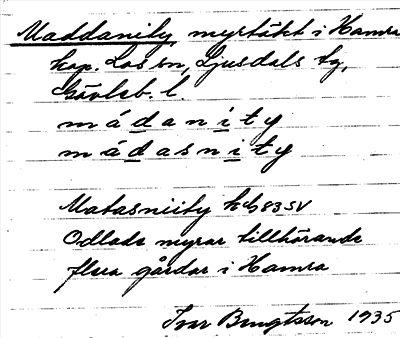 Maddanity, myrtäkt i Hamra
kap. Los sn, Ljusdals tg,
Gävleb. l.
mádanity
mádasnity
Matasniity kbl 83 SV
Odlade myrar tillhörande
flera gårdar i Hamra
Ivar Bengtsson 1935